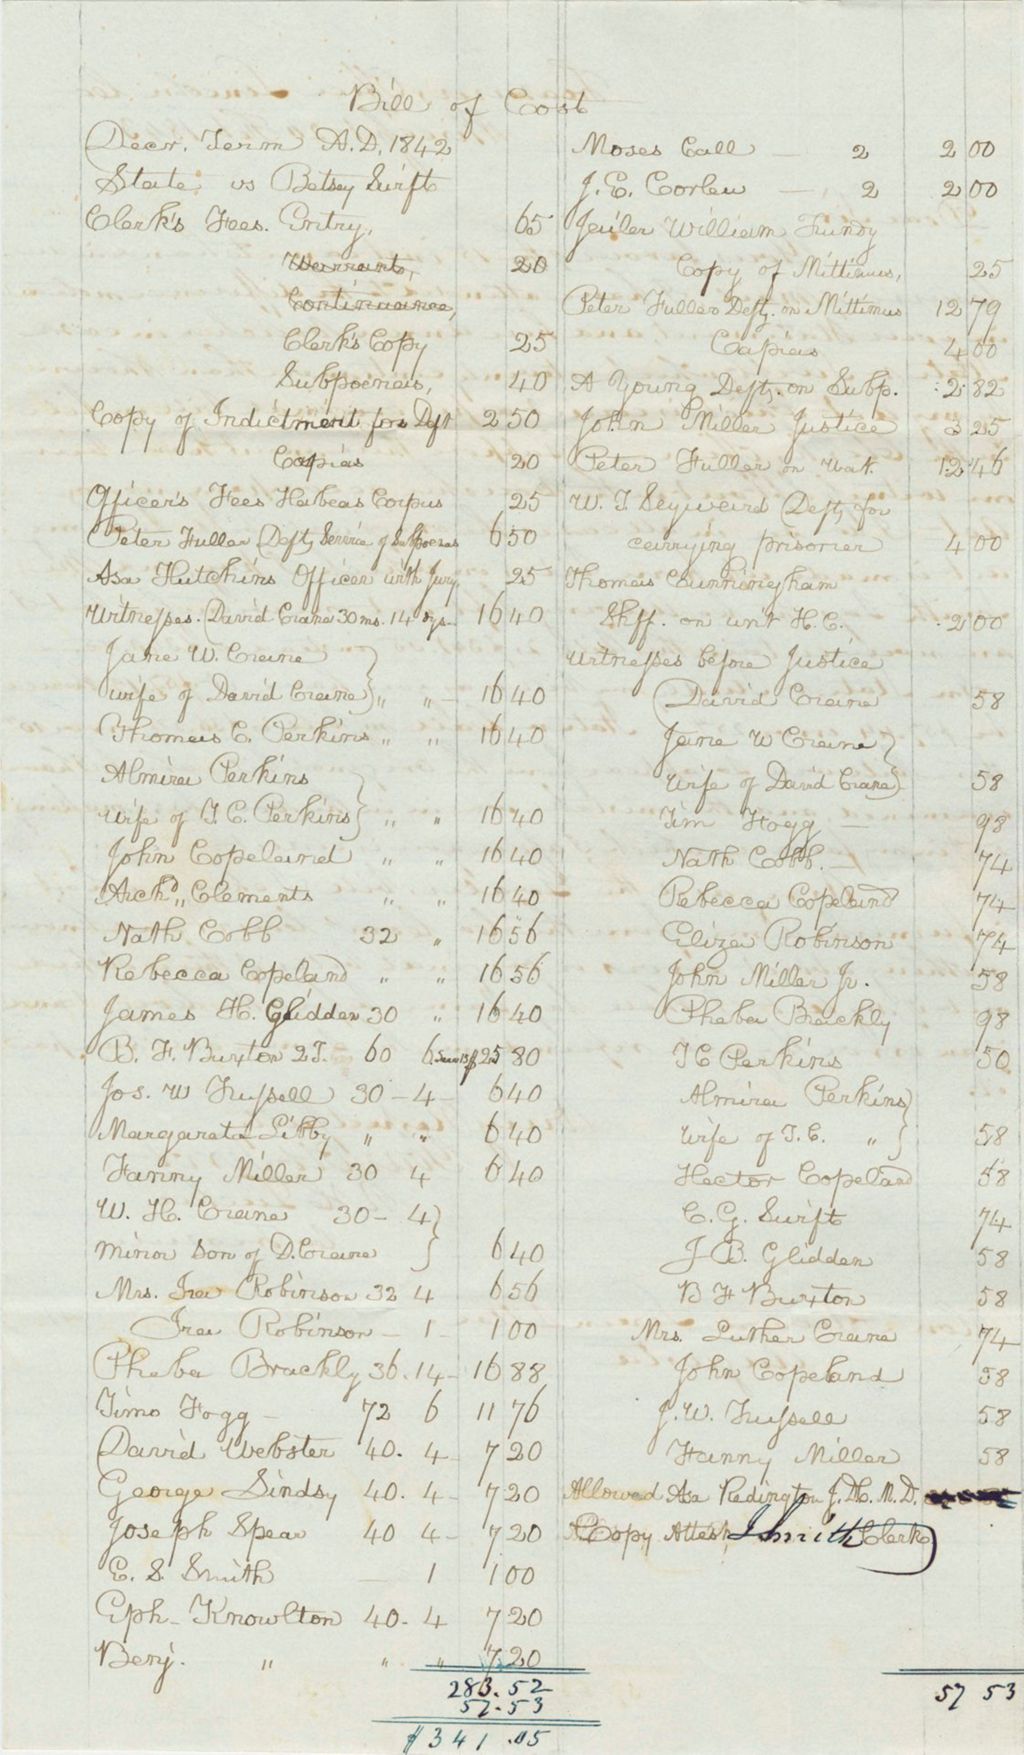 Bill of Cost
Decr. Term A.D. 1842
State vs Betsey Swift
Clerk's Fees. Entry, 65
Warrants, 20
Continuance,
Clerk's Copy 25
Subpoenas, 40
Copy of Indictment for Deft 2 50
Capias 20
Officer's Fees Habeas Corpus 25
Peter Fuller Deft, Service of Subpoenas 6 50
Asa Hutchins Officer with Jury 25
Witnesses. David Crane 30 ms. 14 dys. 16 40
Jane W. Crane
wife of David Crane } " " 16 40
Thomas C. Perkins " " 16 40
Almira Perkins
wife of T. C. Perkins } " " 16 40
John Copeland " " 16 40
Archd. Clements " " 16 40
Nath Cobb 32 " 16 56
Rebecca Copeland " " 16 56
James H. Glidden 30 " 16 40
B. F. Buxton 2 T. 60 6. 25 80
Jos. W Trussell 30 - 4 - 6 40
Margarata Libby " " 6 40
Fanny Miller 30 4 6 40
W. H. Crane 30 - 4 }
minor son of D. Crane } 6 40
Mrs. Ira Robinson 32 4 6 56
Ira Robinson - 1 - 1 00
Pheba Brackly 36. 14 - 16 88
Timo Fogg - 72 6 11 76
David Webster 40. 4 7 20
George Lindsy 40. 4 - 7 20
Joseph Spear 40 4 - 7 20
E. S. Smith - 1 1 00
Eph - Knowlton 40. 4 7 20
Benj. " " " 7 20
283.52
57.53
$341.05
Moses Call - 2 2 00
J. E. Corlew - 2 2 00
Jailer William Tundy
Copy of Mittimus, 25
Peter Fuller Defty. on Mittimus 12 79
Capias 4 00
A Young Defty. on Subp. 2 82
John Miller Justice 3 25
Peter Fuller on Wat. 12 46
W. T. Seyweird Defty for
carrying prisoner 4 00
Thomas Cunningham
Shff. on writ H. C. 2 00
Witnesses before Justice
David Crane 58
Jane W Crane }
wife of David Crane } 58
Tim Fogg - 98
Nath Cobb. - 74
Rebecca Copeland 74
Eliza Robinson 74
John Miller Jr. 58
Pheba Brackly 98
T C Perkins 50
Almira Perkins }
wife of T. C. " } 58
Hector Copeland 58
C. G. Swift 74
J B. Glidden 58
B F Buxton 58
Mrs. Luther Crane 74
John Copeland 58
J. W. Trussell 58
Fanny Miller 58
Allowed Asa Redington J. D. C. M. D.
A Copy Attest J Smith Clerk
57 53